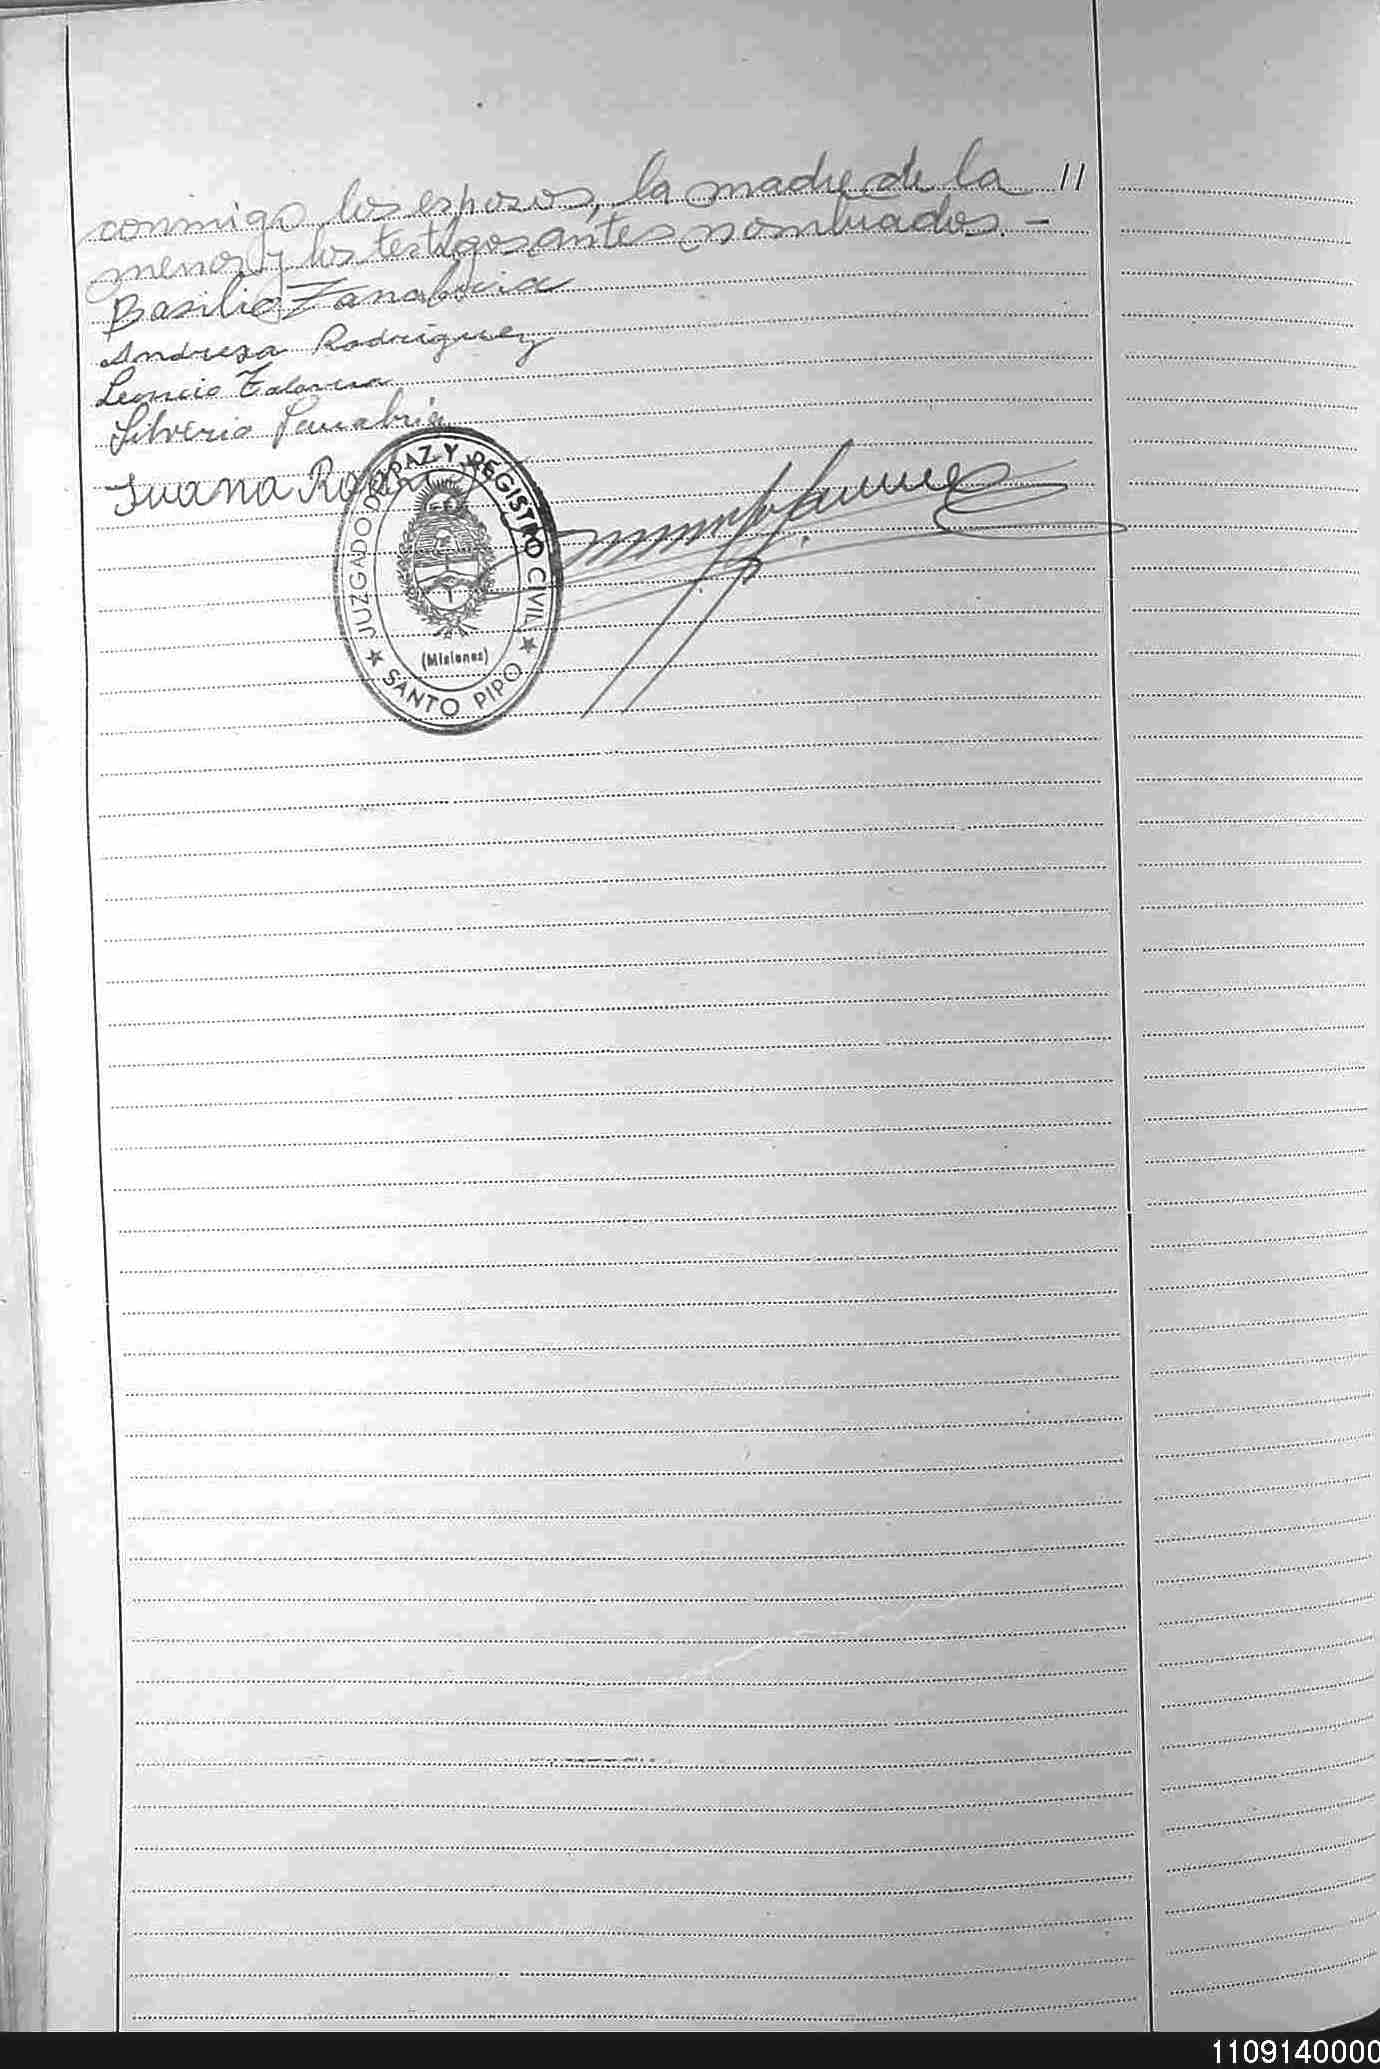 conmigo los esposos, la madre de la 11
menor y los testigos antes nombrados. -
Basilio Zanabria
Andresa Rodriguez
Leoncio
Silverio Sanabria
Juana
JUZGADO DE PAZ Y REGISTRO CIVIL
(Misiones)
★ SANTO PIPO ★
1109140000